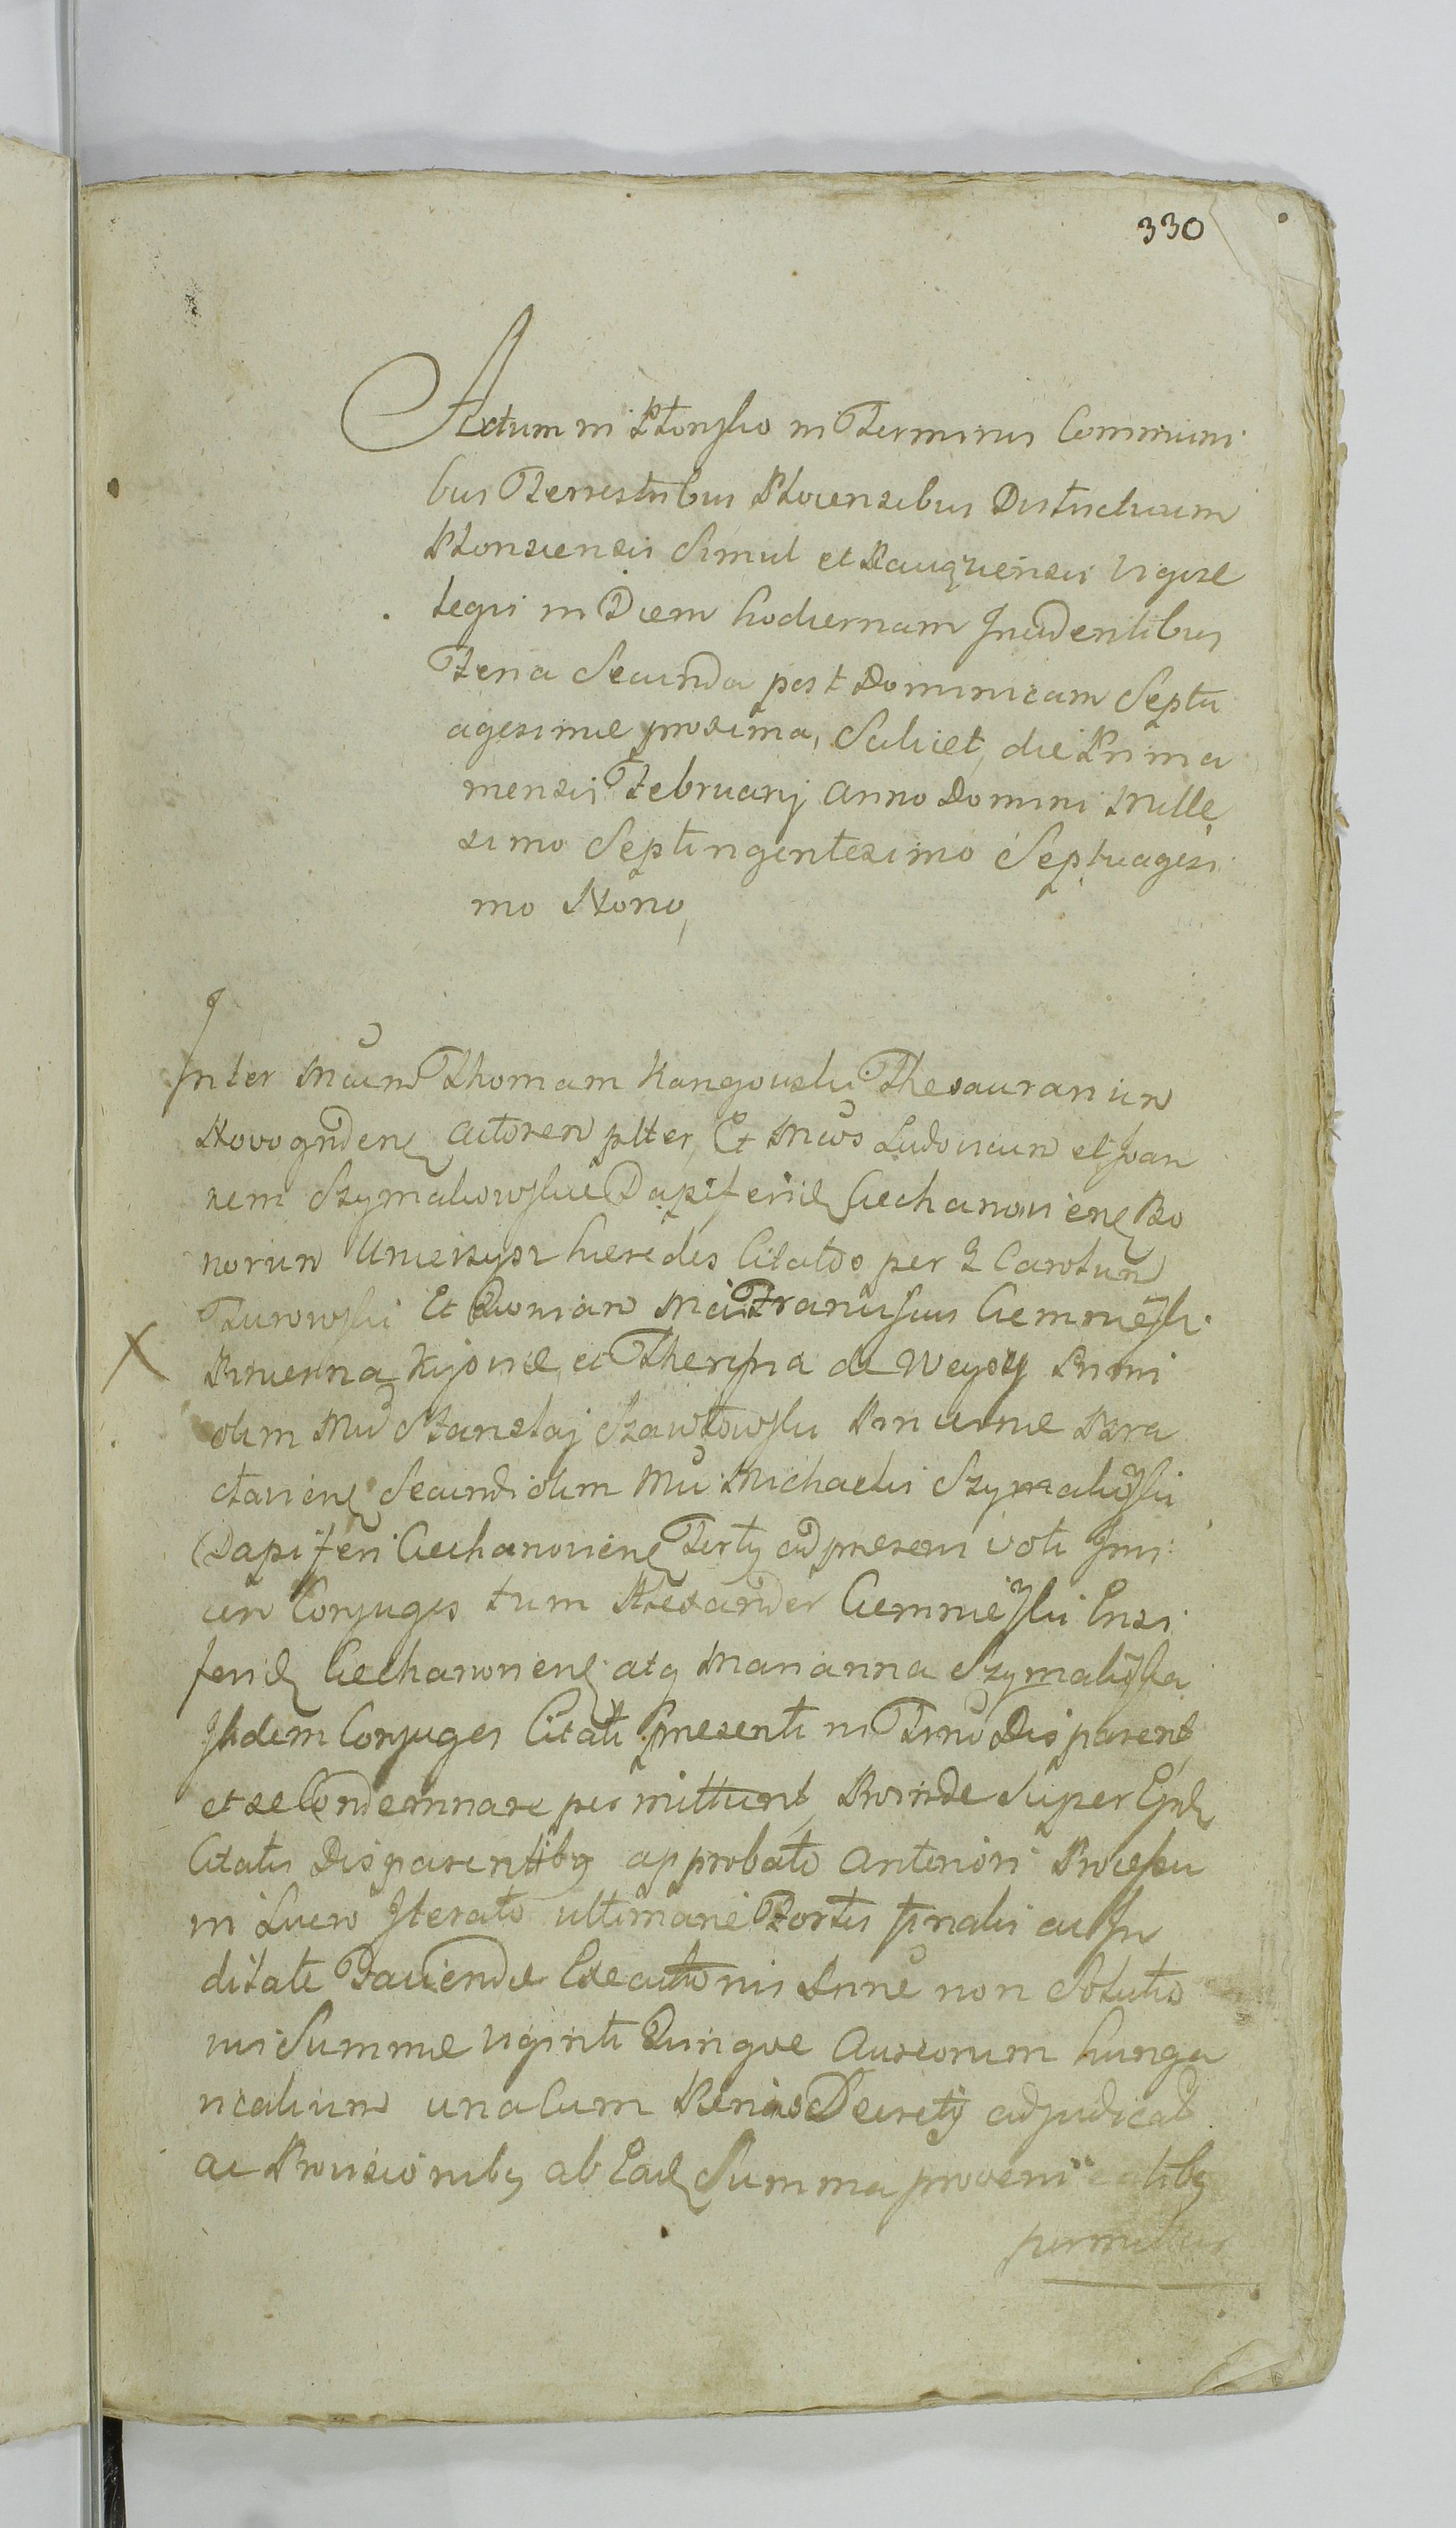 330
Actum in Płonsko in Terminis Communi
bus Terrestribus Plocensibus Districtuum
Plonscensis Simul et Raciąziensis vigore
legis in Diem hodiernam Incidentibus
Feria Secunda post Dominicam Septu
agesimæ proxima, Scilicet, die Prima
mensis Februarij Anno Domini Mille
simo Septingentesimo Septuagesi
mo Nono,
Inter Mcum Thomam Kangowski Thesaurarium
Novogrden Actorem plter Et Mcos Ludovicum et Joan
nem Szymakowskie Dapiferid Ciechanovien Bo
norum Universor hæredes Citatos per G Carolum
Turowski Et Quoniam Mci Franciscus Ciemnieski
Pincerna Kijoviæ et Theressia de Weysy Primi
olim Mci Stanislaj Szawłowski Pincernæ Bra
clavien Secundi olim Mci Michaelis Szymakowski
Dapiferi Ciechanovien Tertij ad præsens voti Invi
cem Conjuges tum Alexander Ciemnieski Ensi
ferid Ciechanovien atq Marianna Szymakoska
Itidem Conjuges Citati præsenti in Tmno Disparent
et se Condemnare permittunt, Proinde Super Ejsd
Citatis Disparentibq approbato Anteriori Processu
in Lucro Iterato ultimariæ Sortis finalis ac In
ditate Faciendæ Executionis Pnnæ non Solutio
nis Summæ viginti Quinque Aureorum hunga
ricalium una Cum Pænis Decreto adjudicat
ac Provisionibq ab Ead Summa provenientibq
permittitur